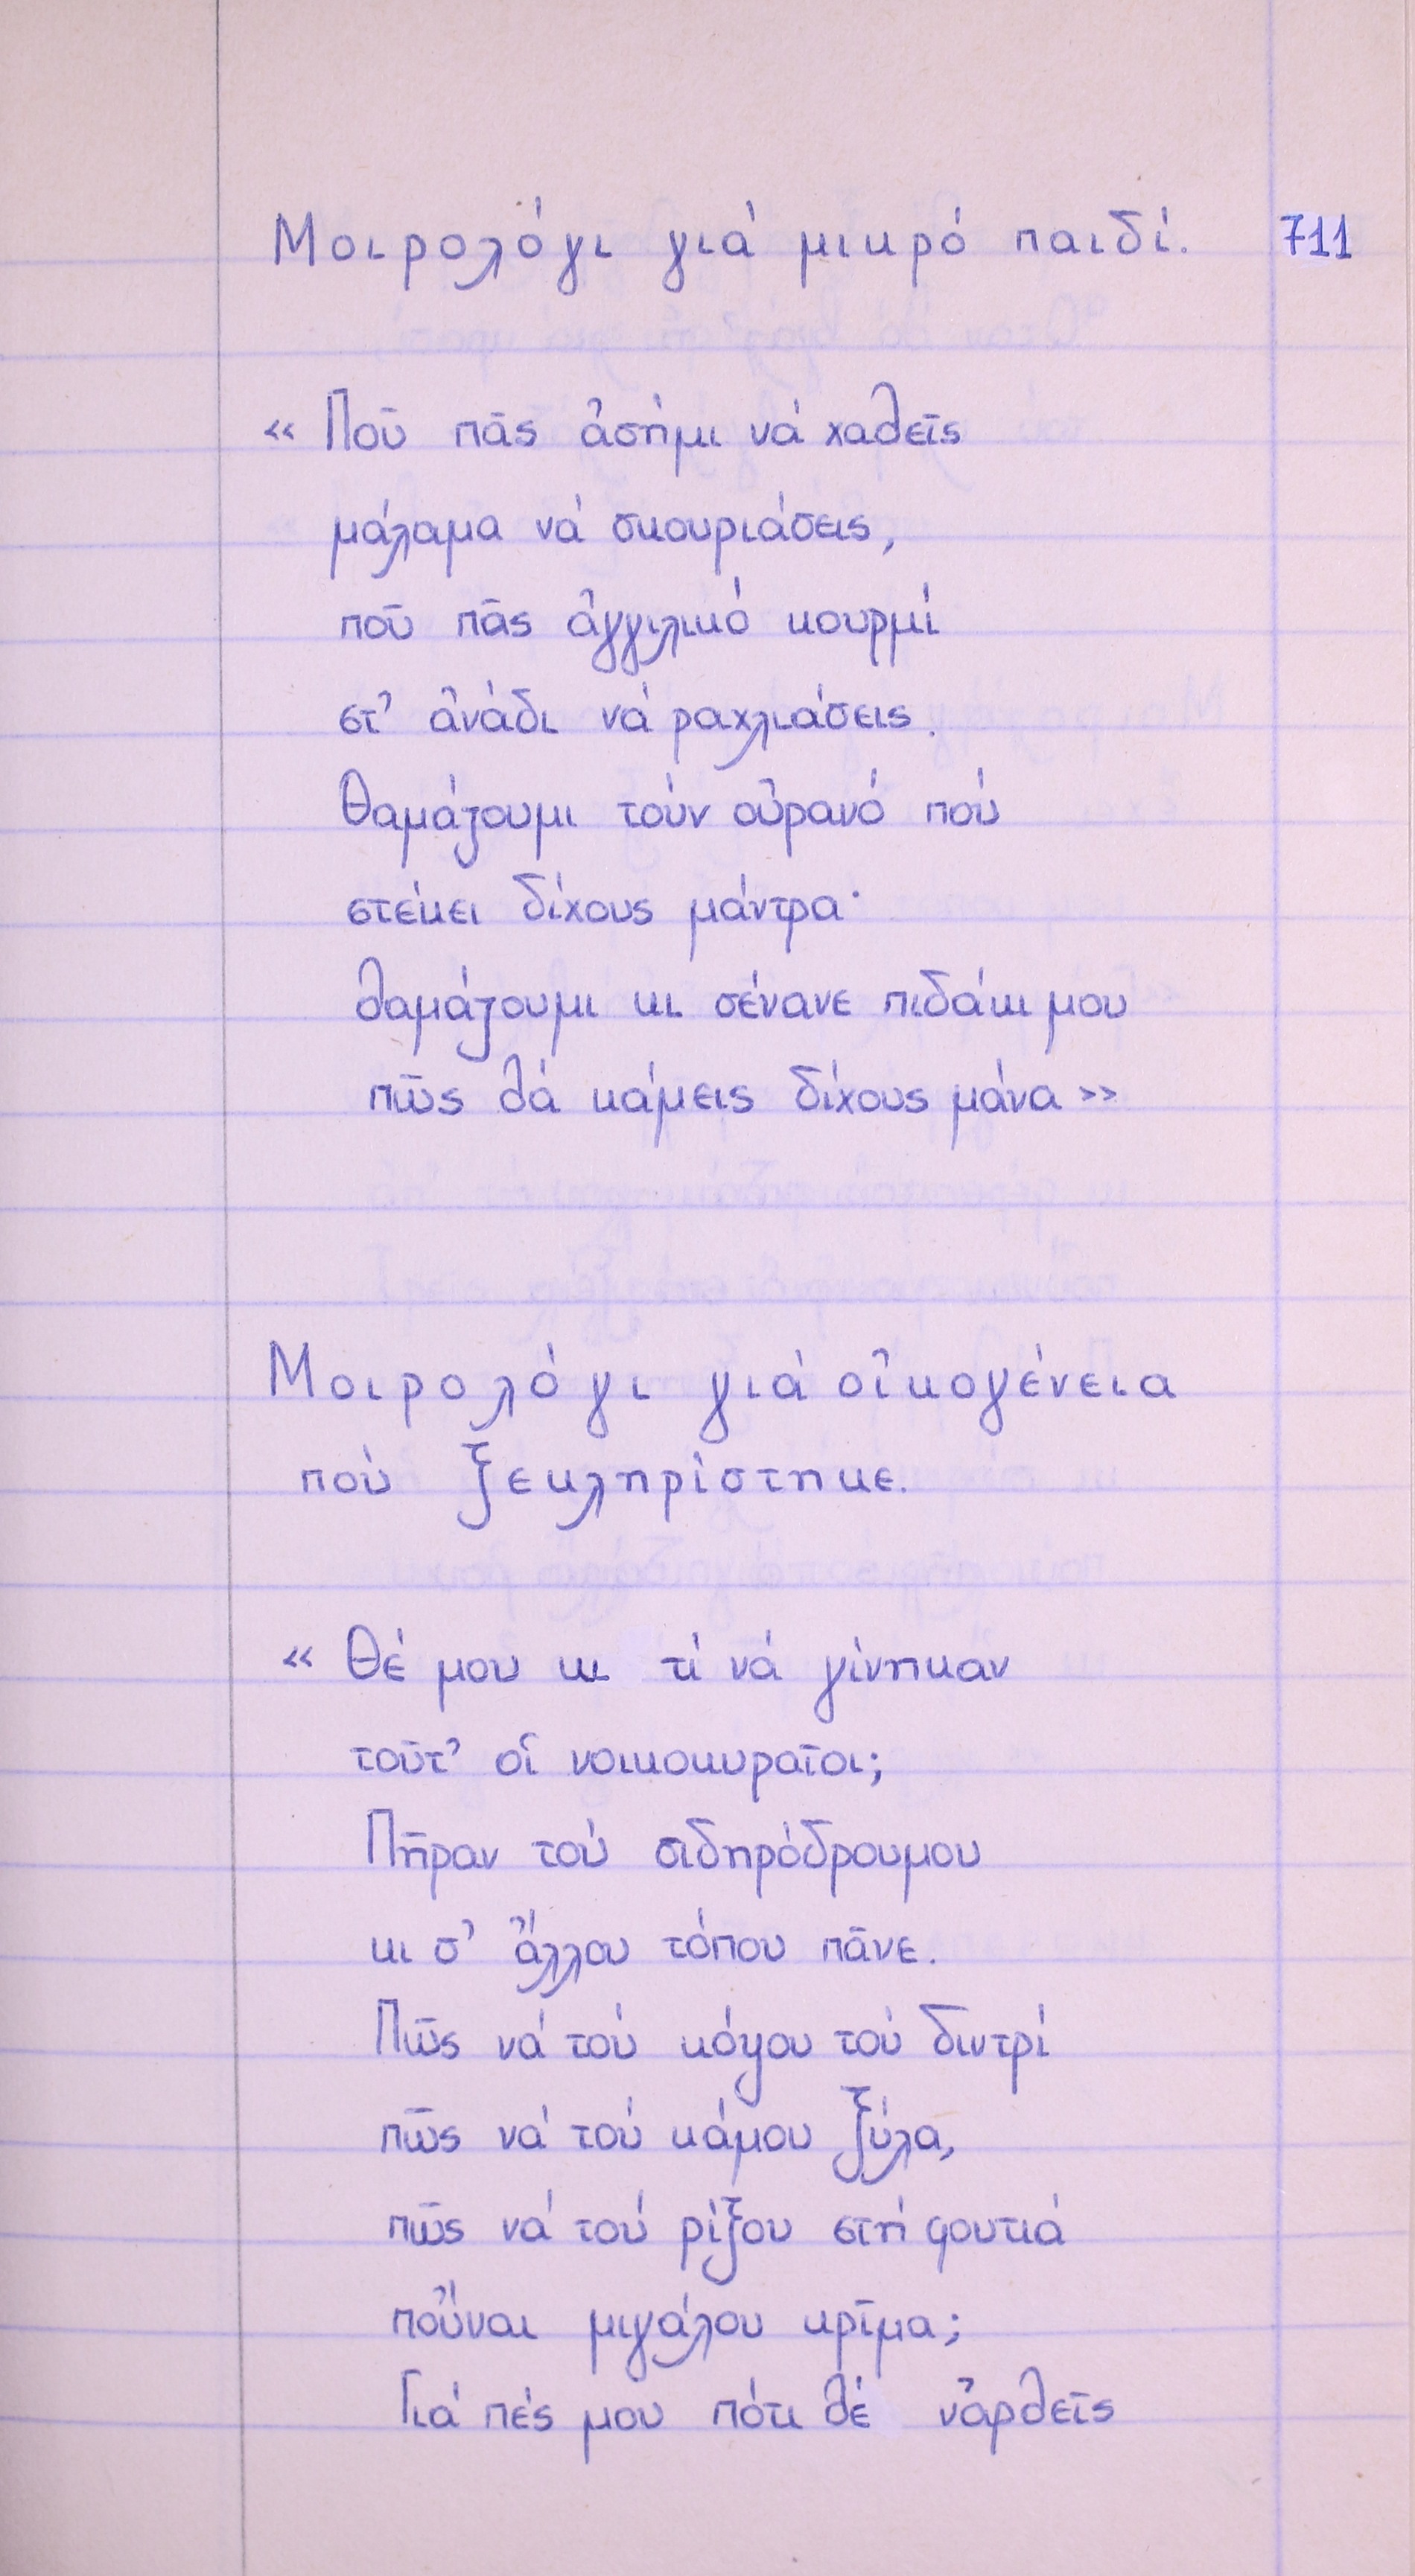 Μοιρολόγι γιά μικρό παιδί. 711
« Ποῦ πᾶς ἀσήμι νά χαθεῖς
μάλαμα νά σκουριάσεις,
ποῦ πᾶς ἀγγιλικό κουρμί
στ' ἀνάδι νά ραχλιάσεις.
Θαμάζουμι τούν οὐρανό πού
στέκει δίχους μάντρα·
θαμάζουμι κι σένανε πιδάκι μου
πῶς θά κάμεις δίχους μάνα »
Μοιρολόγι γιά οἰκογένεια
πού ξεκληρίστηκε.
« Θέ μου κι τί νά γίνηκαν
τοῦτ' οἱ νοικοκυραῖοι;
Πῆραν τού σιδηρόδρουμου
κι σ' ἄλλου τόπου πᾶνε.
Πῶς νά τού κόψου τού διντρί
πῶς νά τού κάμου ξύλα,
πῶς νά τού ρίξου στή φουτιά
ποὔναι μιγάλου κρῖμα;
Γιά πές μου πότι θέ νἀρθεῖς